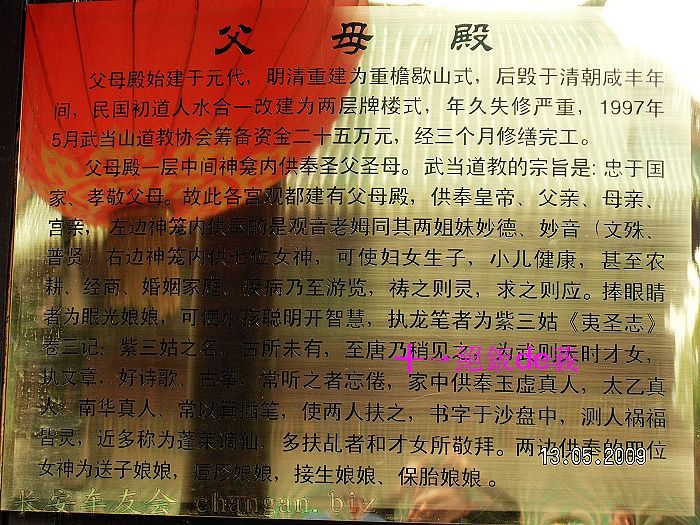 父母殿
父母殿始建于元代，明清重建为重檐歇山式，后毁于清朝咸丰年
间，民国初道人水合一改建为两层牌楼式，年久失修严重，1997年
5月武当山道教协会筹备资金二十五万元，经三个月修缮完工。
父母殿一层中间神龛内供奉圣父圣母。武当道教的宗旨是：忠于国
家、孝敬父母。故此各宫观都建有父母殿，供奉皇帝、父亲、母亲、
宫亲，左边神笼内供奉的是观音老姆同其两姐妹妙德、妙音（文殊、
普贤）右边神笼内供七位女神，可使妇女生子，小儿健康，甚至农
耕、经商、婚姻家庭、疾病乃至游览，祷之则灵，求之则应。捧眼睛
者为眼光娘娘，可使小孩聪明开智慧，执龙笔者为紫三姑《夷圣志》
卷三记、紫三姑之名，古所未有，至唐乃稍见之，为武则天时才女，
执文章，好诗歌、古筝，常听之者忘倦，家中供奉玉虚真人，太乙真
人、南华真人、常以箕插笔，使两人扶之，书字于沙盘中，测人祸福
皆灵，近多称为蓬莱谪仙，多扶乩者和才女所敬拜。两边供奉的四位
女神为送子娘娘，痘疹娘娘，接生娘娘、保胎娘娘。
13.05.2009
长安车友会 changan.biz